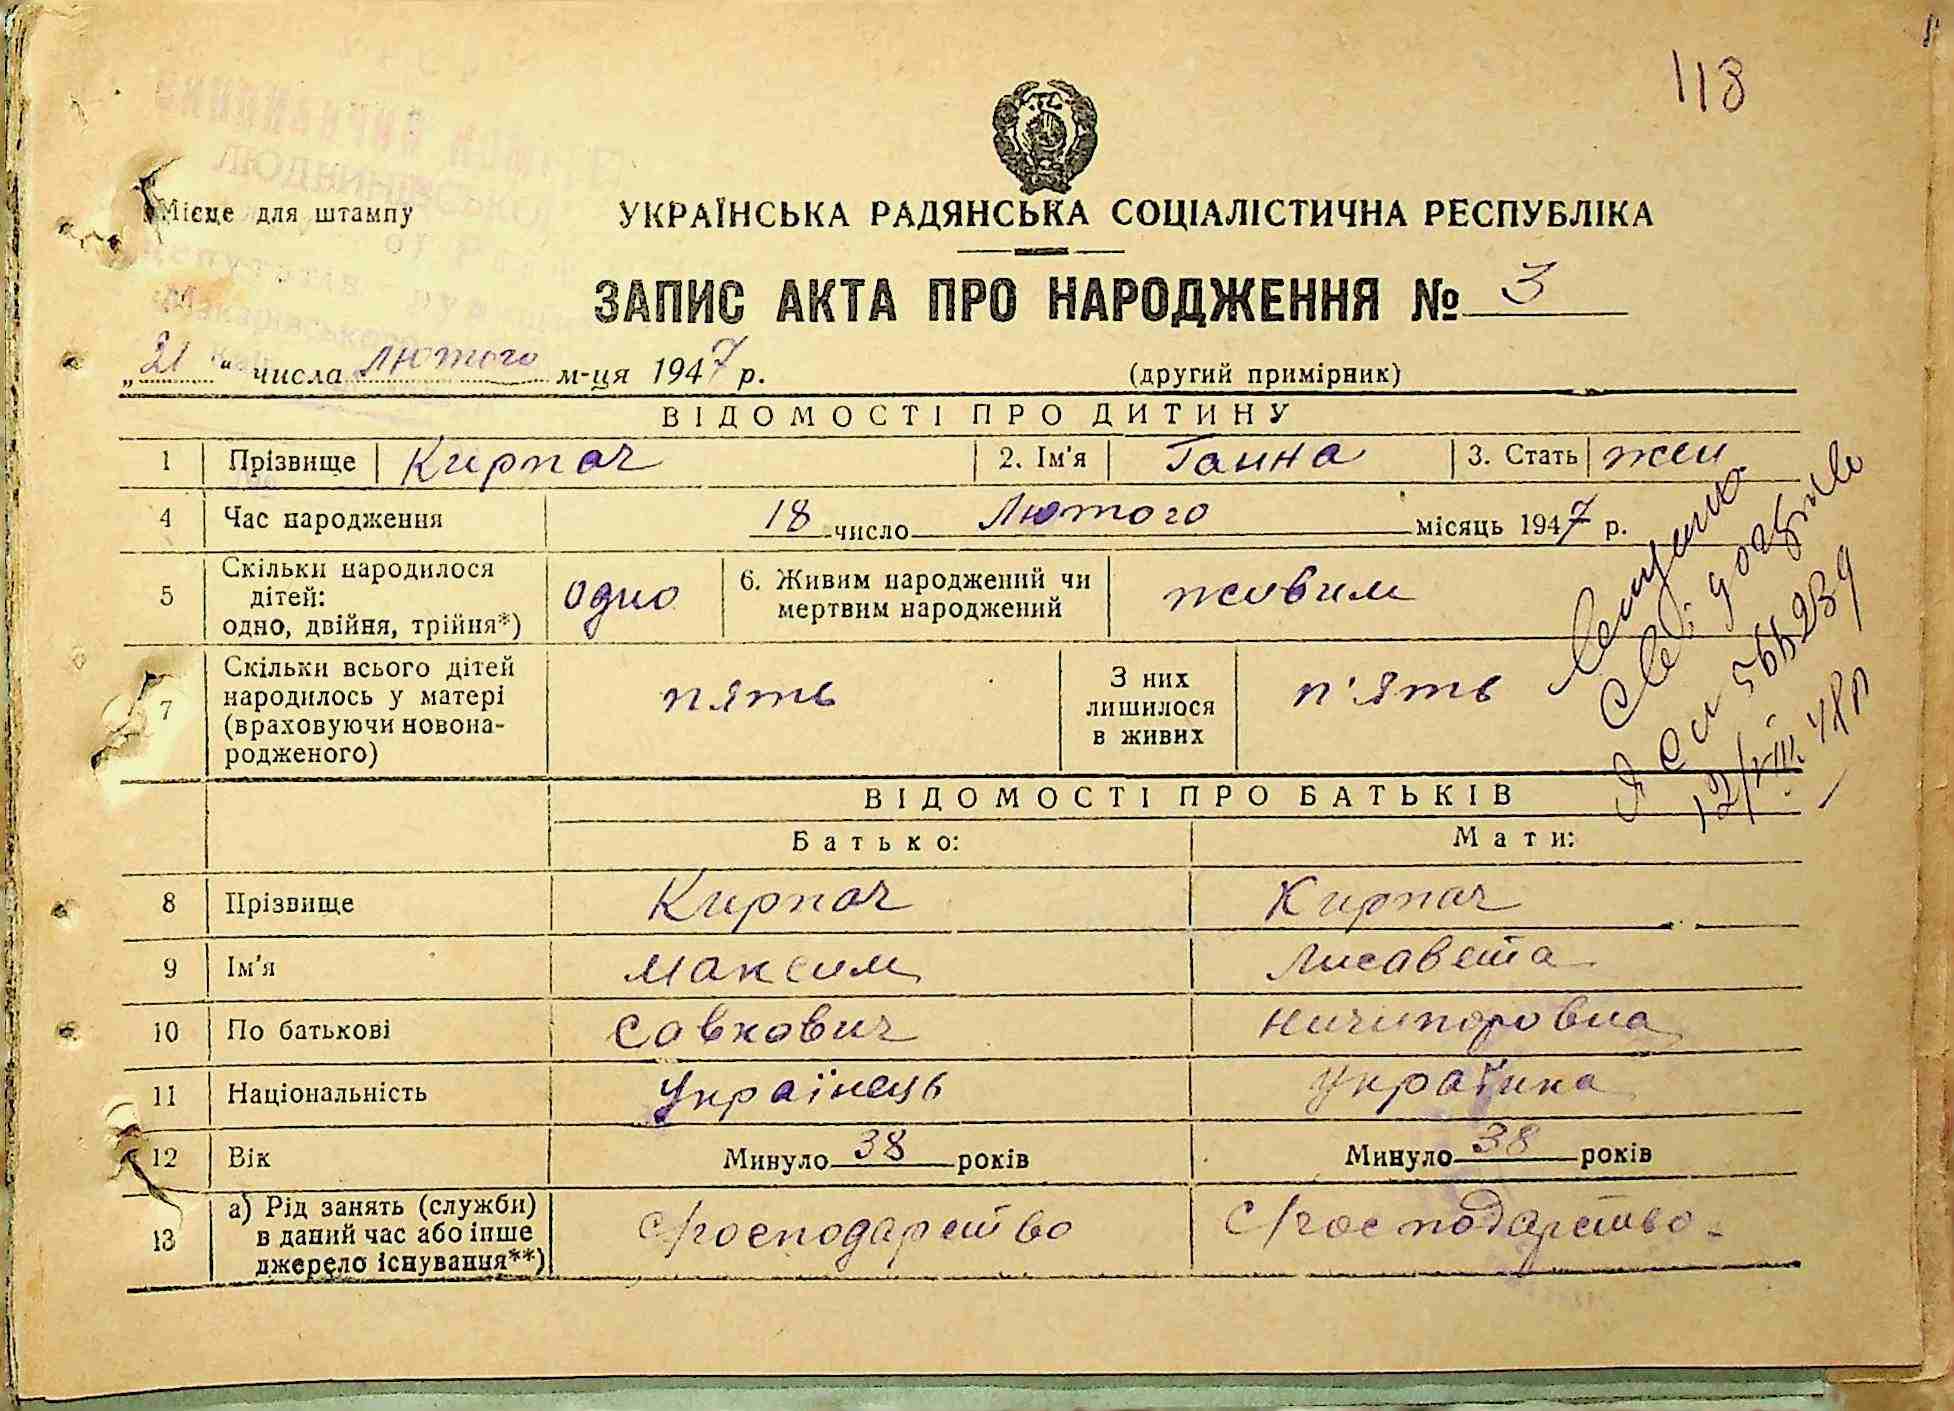 118
Місце для штампу
УКРАЇНСЬКА РАДЯНСЬКА СОЦІАЛІСТИЧНА РЕСПУБЛІКА
ЗАПИС АКТА ПРО НАРОДЖЕННЯ № 3
„21“ числа лютого м-ця 1947 р.
(другий примірник)
ВІДОМОСТІ ПРО ДИТИНУ
1 Прізвище Кирпач 2. Ім'я Ганна 3. Стать жен
4 Час народження 18 число Лютого місяць 1947 р.
5 Скільки народилося дітей: одно, двійня, трійня*) одно 6. Живим народжений чи мертвим народжений живим
7 Скільки всього дітей народилось у матері (враховуючи новонародженого) пять З них лишилося в живих п'ять
566239
12/VIII 48р
ВІДОМОСТІ ПРО БАТЬКІВ
Батько: Мати:
8 Прізвище Кирпач Кирпач
9 Ім'я Максим Лисавета
10 По батькові Савкович Ничипоровна
11 Національність Українець Українка
12 Вік Минуло 38 років Минуло 38 років
13 а) Рід занять (служби) в даний час або інше джерело існування**) с/господарство с/господарство